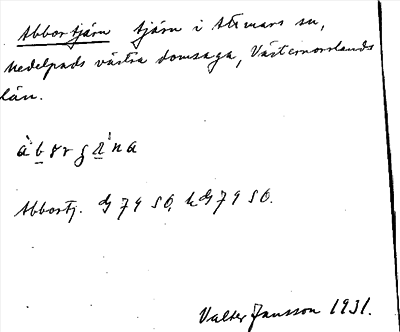 Abbortjärn tjärn i Attmars sn,
Medelpads västra domsaga, Västernorrlands
län.
Abbortj. G 79 SO, k G 79 SO.
Valter Jansson 1931.